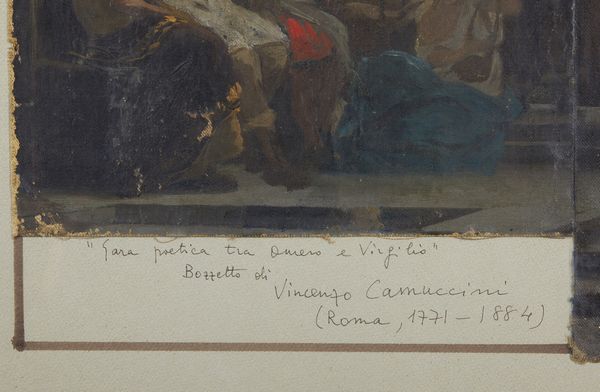 "Gara poetica tra Omero e Virgilio"
Bozzetto di
Vincenzo Camuccini
(Roma, 1771-1884)